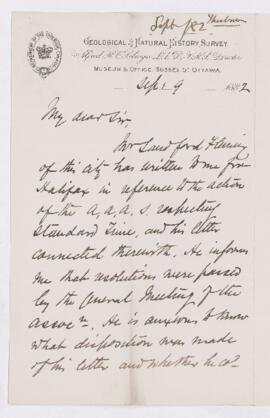 Sept /82
GEOLOGICAL & NATURAL HISTORY SURVEY
Alfred R. C. Selwyn L.L.D. F.R.S. Director
MUSEUM & OFFICE, SUSSEX ST OTTAWA.
Sept 9 1882
My dear Sir
Mr Sandford Fleming
of this city has written to me from
Halifax in reference to the action
of the A. A. A. S. respecting
Standard Time, and his letter
connected therewith. He informs
me that resolutions were passed
by the General Meeting of the
assocn. He is anxious to know
what disposition was made
of his letter and whether he cd